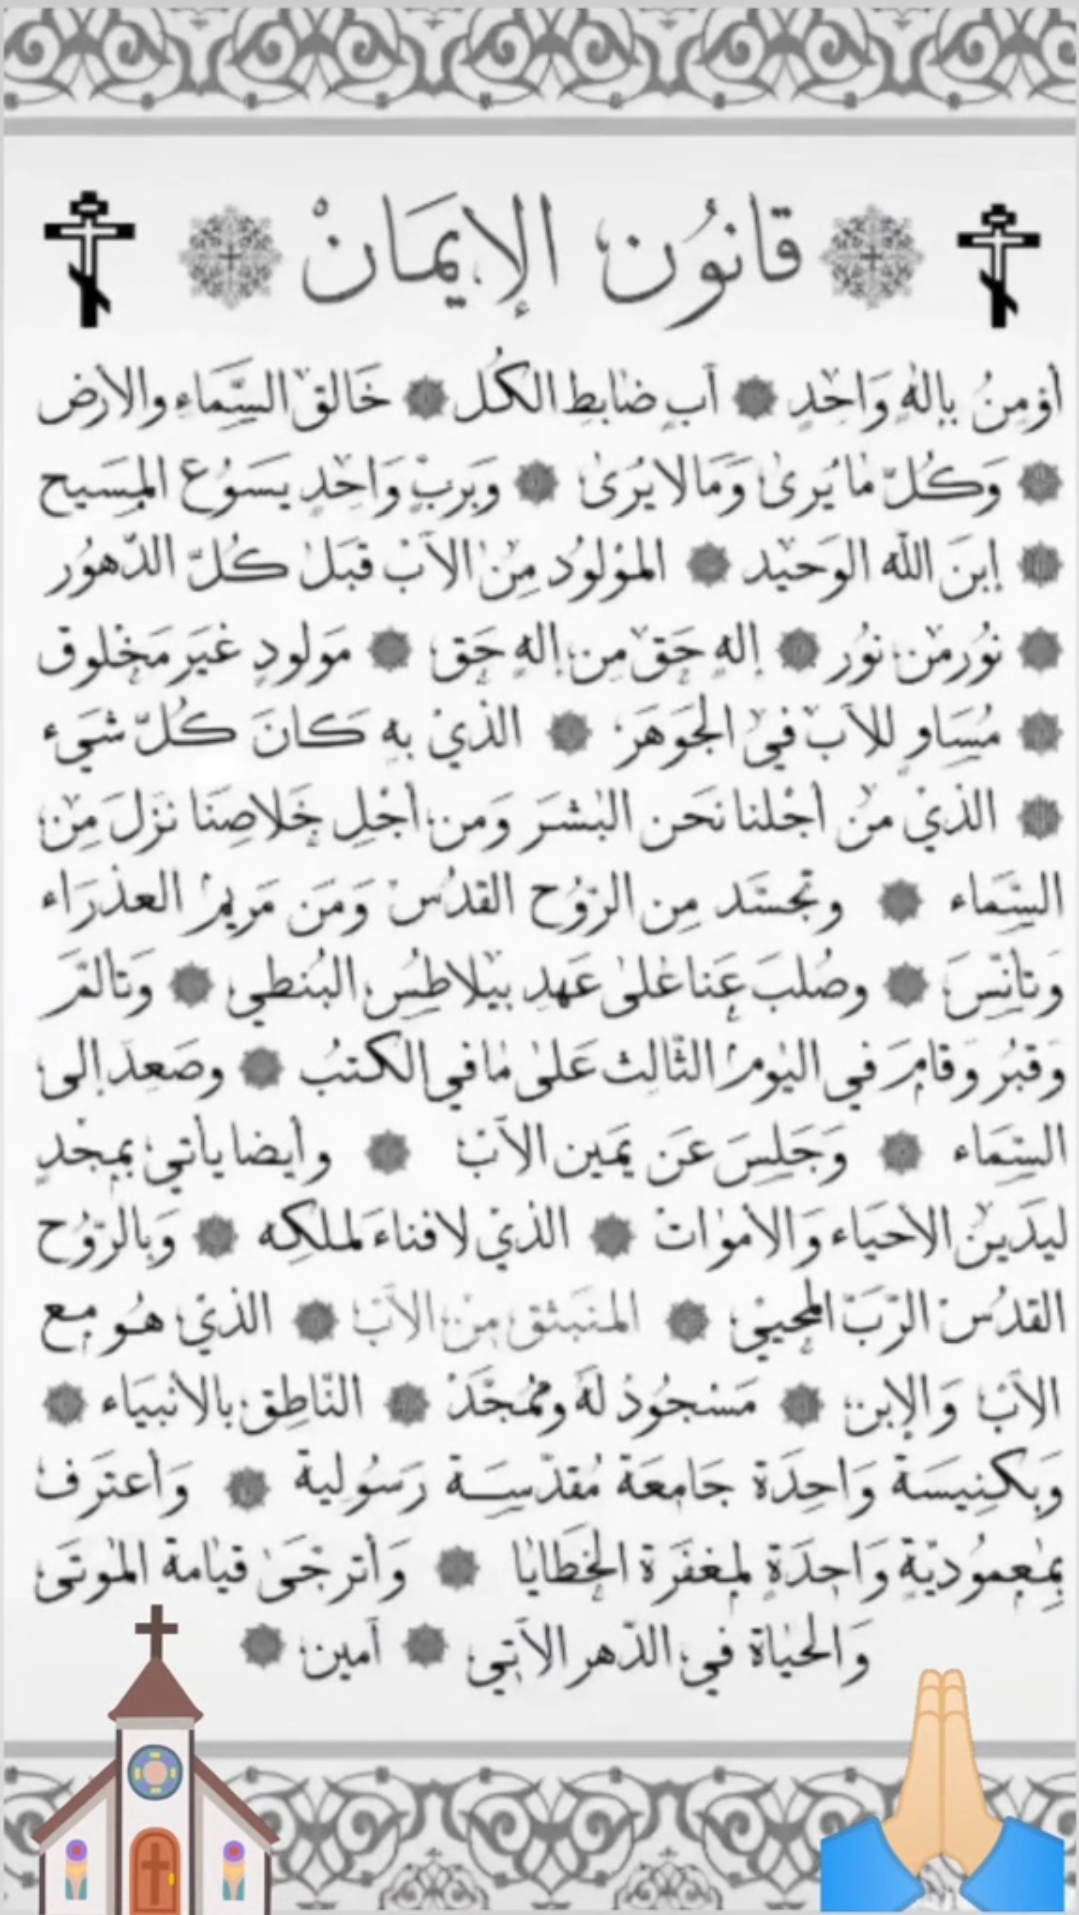 قانون الإيمان
أؤمن بإله واحد ۞ آب ضابط الكل ۞ خالق السماء والأرض
۞ وكل ما يرى وما لا يرى ۞ وبرب واحد يسوع المسيح
۞ إبن الله الوحيد ۞ المولود من الآب قبل كل الدهور
۞ نور من نور ۞ إله حق من إله حق ۞ مولود غير مخلوق
۞ مساو للآب في الجوهر ۞ الذي به كان كل شيء
۞ الذي من أجلنا نحن البشر ومن أجل خلاصنا نزل من
السماء ۞ وتجسد من الروح القدس ومن مريم العذراء
وتأنس ۞ وصلب عنا على عهد بيلاطس البنطي ۞ وتألم
وقبر وقام في اليوم الثالث على ما في الكتب ۞ وصعد إلى
السماء ۞ وجلس عن يمين الآب ۞ وأيضا يأتي بمجد
ليدين الأحياء والأموات ۞ الذي لا فناء لملكه ۞ وبالروح
القدس الرب المحيي ۞ المنبثق من الآب ۞ الذي هو مع
الآب والإبن ۞ مسجود له وممجد ۞ الناطق بالأنبياء ۞
وبكنيسة واحدة جامعة مقدسة رسولية ۞ وأعترف
بمعمودية واحدة لمغفرة الخطايا ۞ وأترجى قيامة الموتى
والحياة في الدهر الآتي ۞ آمين ۞